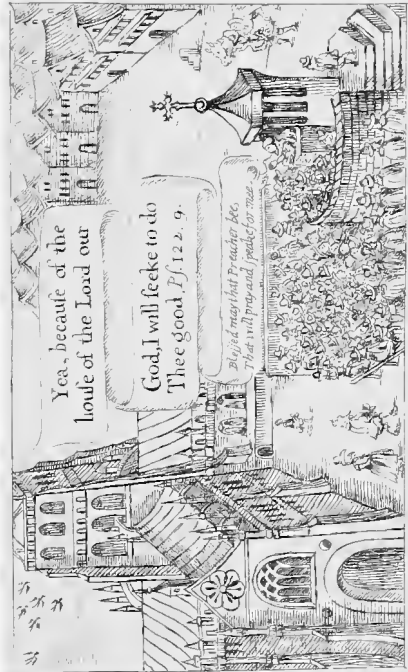 Yea, becauſe of the
houſe of the Lord our
God, I will ſeeke to do
Thee good. Pſ 122. 9.
Bleſſed may that Preacher bee,
That will pray and ſpeake for mee.